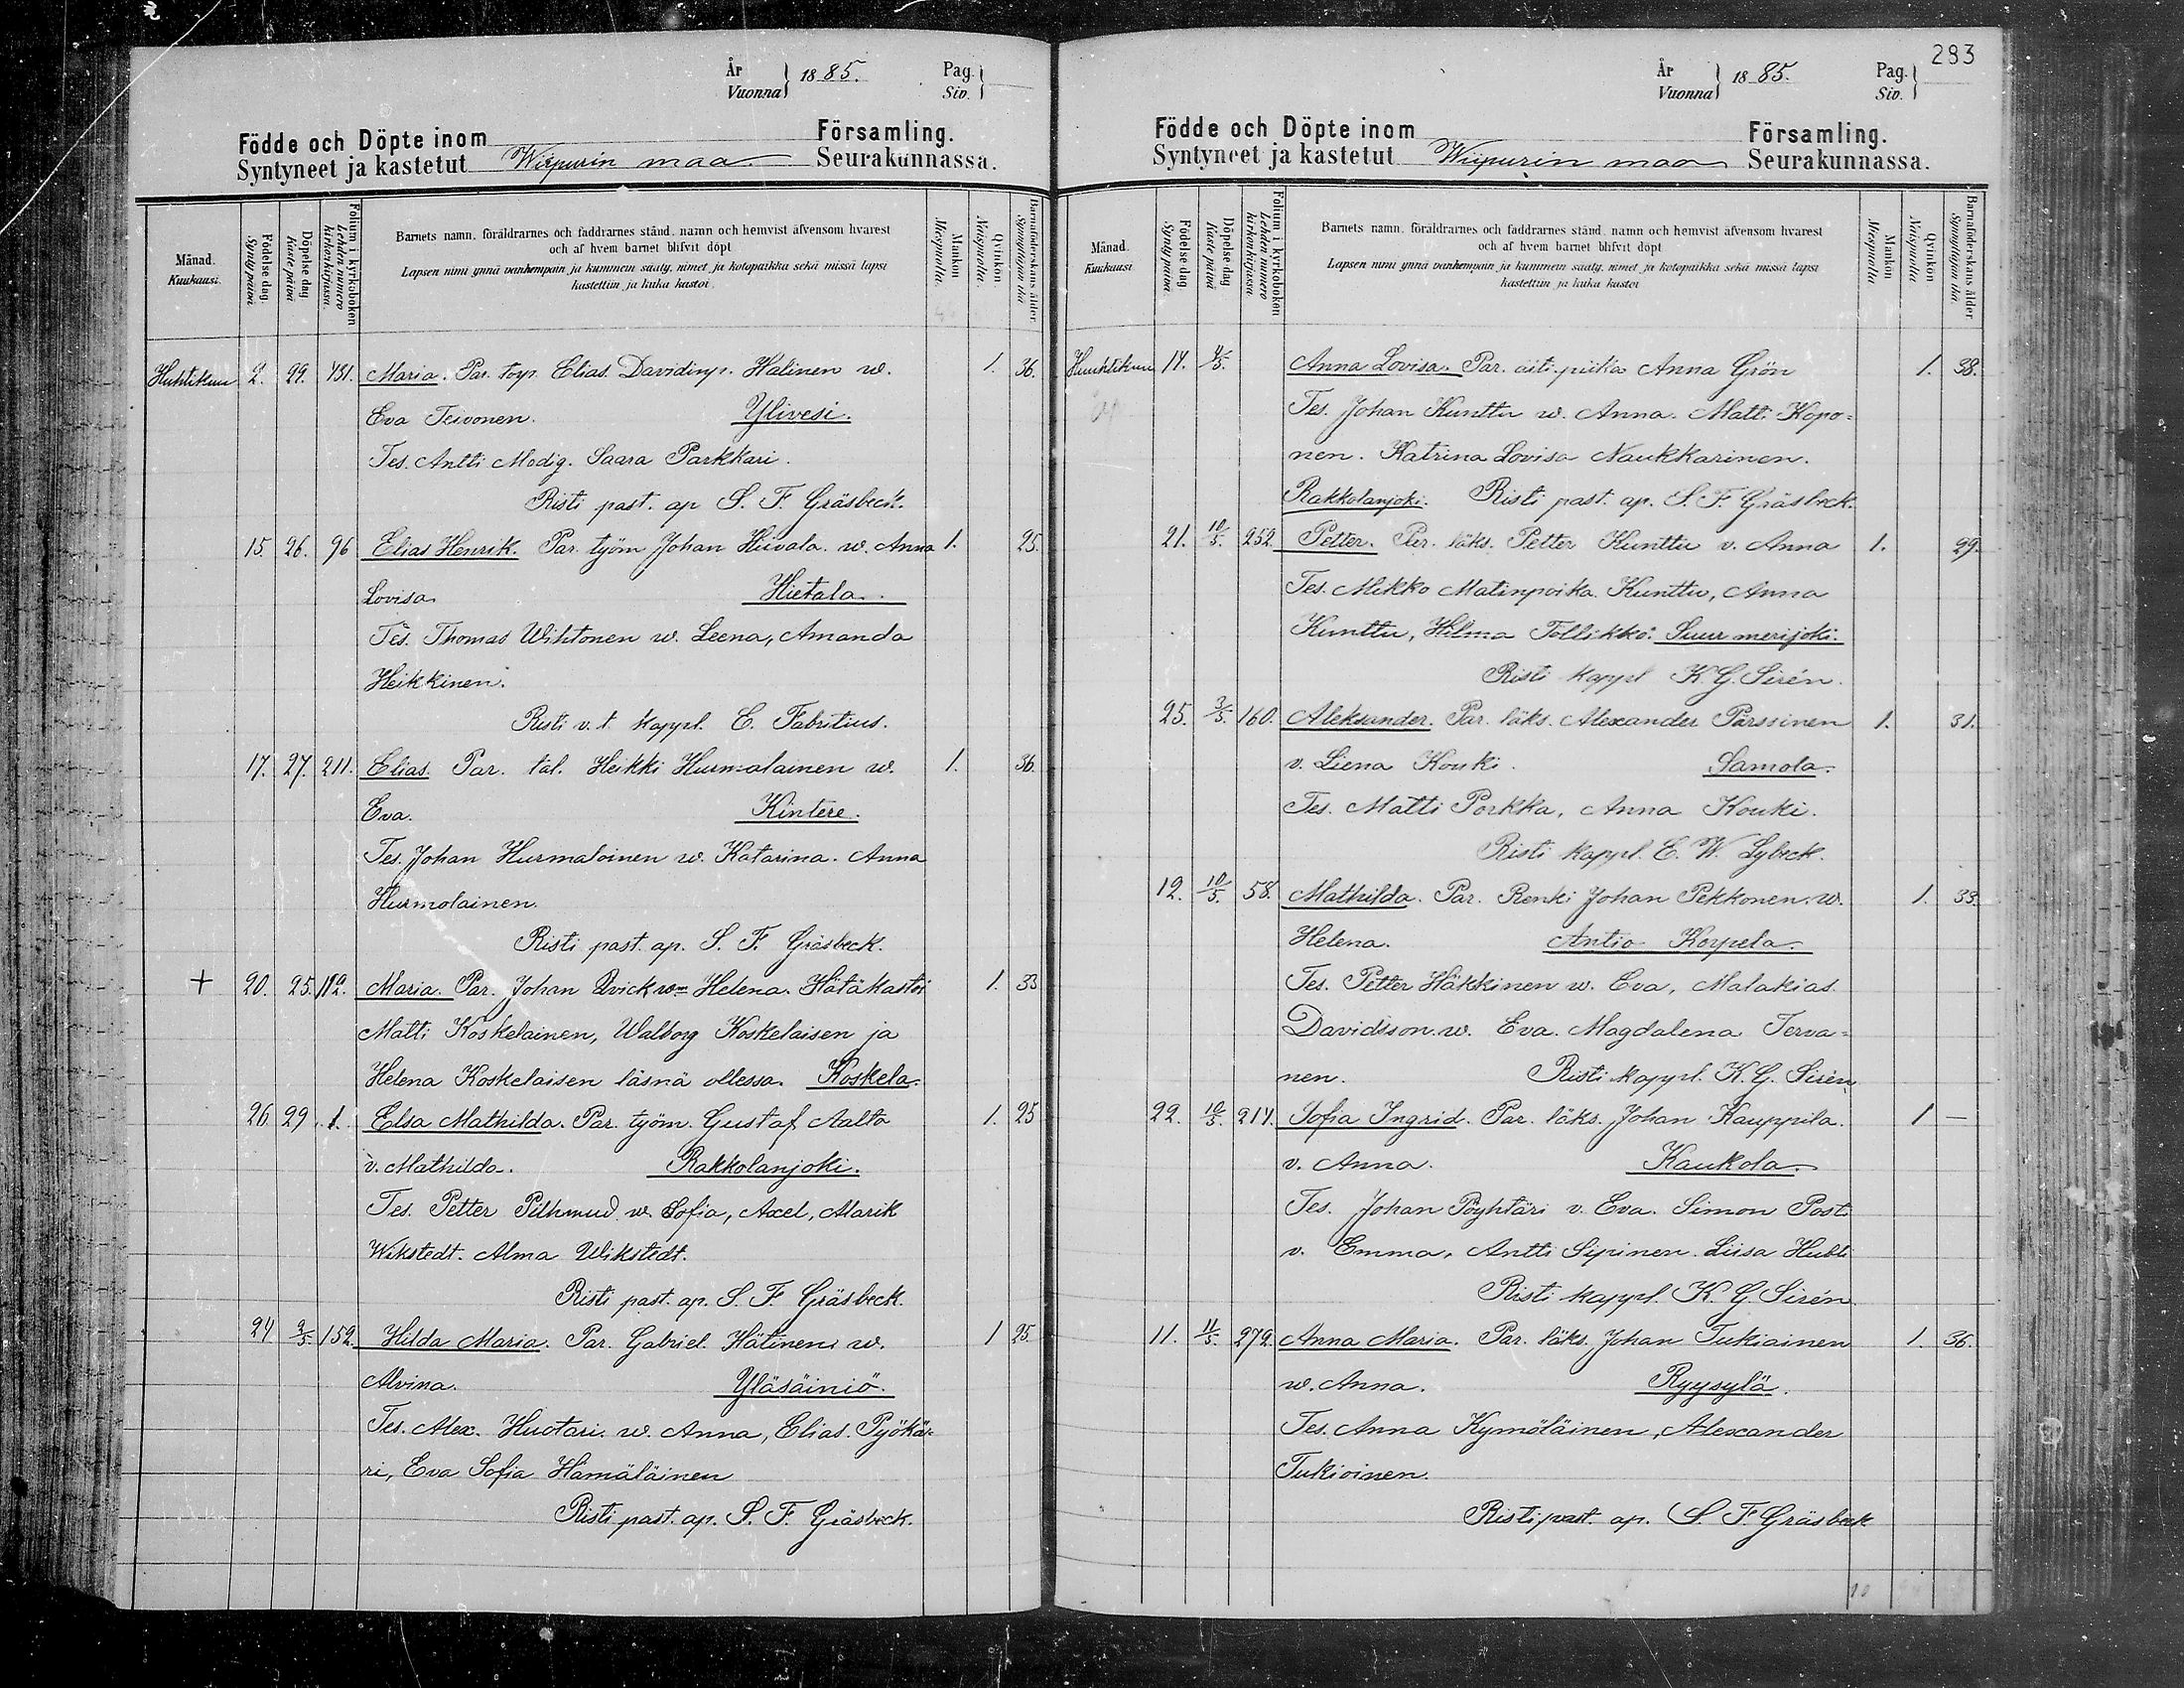 År
Vuonna } 1885.
Pag.
Siv. }
Födde och Döpte inom Församling.
Syntyneet ja kastetut Wiipurin maa Seurakunnassa.
Månad.
Kuukausi.
Födelse dag.
Syntypäivä.
Döpelse dag
Kaste päivä
Folium i kyrkoboken
Lehden numero
kirkonkirjassa.
Barnets namn, föräldrarnes och faddrarnes stånd, namn och hemvist äfvensom hvarest
och af hvem barnet blifvit döpt
Lapsen nimi ynnä vanhempain ja kummein sääty, nimet ja kotopaikka sekä missä lapsi
kastettiin ja kuka kastoi.
Mankön
Miespuolta.
Qvinkön
Naispuolta.
Barnaföderskans ålder
Synnyttäjän ikä
Huhtikuu 2. 29. 431. Maria. Par. torp. Elias Davidinp. Halinen w. 1. 36.
Eva Teivonen. Ylivesi.
Tes. Antti Modig. Saara Parkkari.
Risti past. ap S. F. Gräsbeck.
15. 26. 96 Elias Henrik. Par. työm Johan Hiivala. w. Anna 1. 25.
Lovisa Hietala.
Tes. Thomas Wihtonen w. Leena, Amanda
Heikkinen.
Risti v. t. kappl. E. Fabritius.
17. 27. 211. Elias. Par. tal. Heikki Hurmalainen w. 1. 36.
Eva. Kintere.
Tes. Johan Hurmaloinen w. Katarina. Anna
Hurmolainen.
Risti past. ap. S. F. Gräsbeck.
+ 20. 25. 182. Maria. Par. Johan Qvick wm Helena. Hätäkastoi 1. 33
Matti Koskelainen, Walborg Koskelaisen ja
Helena Koskelaisen läsnä ollessa. Koskela.
26. 29. 1. Elsa Mathilda. Par. työm. Gustaf Aalto 1. 25
v. Mathilda. Rakkolanjoki.
Tes. Petter w. Sofia, Axel, Marik
Wikstedt. Alma Wikstedt.
Risti past. ap. S. F. Gräsbeck.
24 2/5. 152. Hilda Maria. Par. Gabriel Hätinen w. 1 25.
Alvina. Yläsäiniö.
Tes. Alex. Huotari w. Anna, Elias. Pyökä-
ri, Eva Sofia Hämäläinen
Risti past. ap. S. F. Gräsbeck.
283
År
Vuonna } 1885.
Pag.
Siv. }
Födde och Döpte inom Församling.
Syntyneet ja kastetut Wiipurin maa Seurakunnassa.
Månad.
Kuukausi
Födelse dag
Syntypäivä
Döpelse dag
Kaste päivä
Folium i kyrkoboken
Lehden numero
kirkonkirjassa.
Barnets namn, föräldrarnes och faddrarnes stånd, namn och hemvist äfvensom hvarest
och af hvem barnet blifvit döpt
Lapsen nimi ynnä vanhempain ja kummein sääty, nimet ja kotopaikka sekä missä lapsi
kastettiin ja kuka kastoi
Mankön
Miespuolta
Qvinkön
Naispuolta.
Barnaföderskans ålder
Synnyttäjän ikä.
Huuhtikuu 14. 4/5. Anna Lovisa. Par. äiti piika Anna Grön 1. 38.
Tes. Johan Kunttu w. Anna. Matti Kopo=
nen. Katrina Lovisa Naukkarinen.
Rakkolanjoki. Risti past. ap. S. F. Gräsbeck.
21. 10/5. 252. Petter. Par. läks. Petter Kunttu v. Anna 1. 29.
Tes. Mikko Matinpoika Kunttu, Anna
Kunttu, Hilma Tollikko. Suur merijoki.
Risti kappl K. G. Sirén.
25. 3/5. 160. Aleksander. Par. läks. Alexander Pärssinen 1. 31.
v. Liena Kouki. Samola.
Tes. Matti Porkka, Anna Kouki.
Risti kappl. E. W. Lybeck.
12. 10/5. 58. Mathilda. Par. Renki Johan Pekkonen. w. 1. 33.
Helena. Antio Korpela.
Tes. Petter Häkkinen w. Eva, Malakias.
Davidsson. w. Eva. Magdalena Terva=
nen. Risti kappl. K. G. Sirén
22. 10/5. 214. Sofia Ingrid. Par. läks. Johan Kauppila. 1 —
v. Anna. Kaukola.
Tes. Johan Pöyhtäri v. Eva. Simon Posti
v. Emma, Antti Sipinen. Liisa
Risti kappl. K. G. Sirén
11. 11/5. 272. Anna Maria. Par. läks. Johan Tukiainen 1. 36.
w. Anna. Ryysylä.
Tes. Anna Kymöläinen, Alexander
Tukioinen.
Risti past. ap. S. F. Gräsbeck